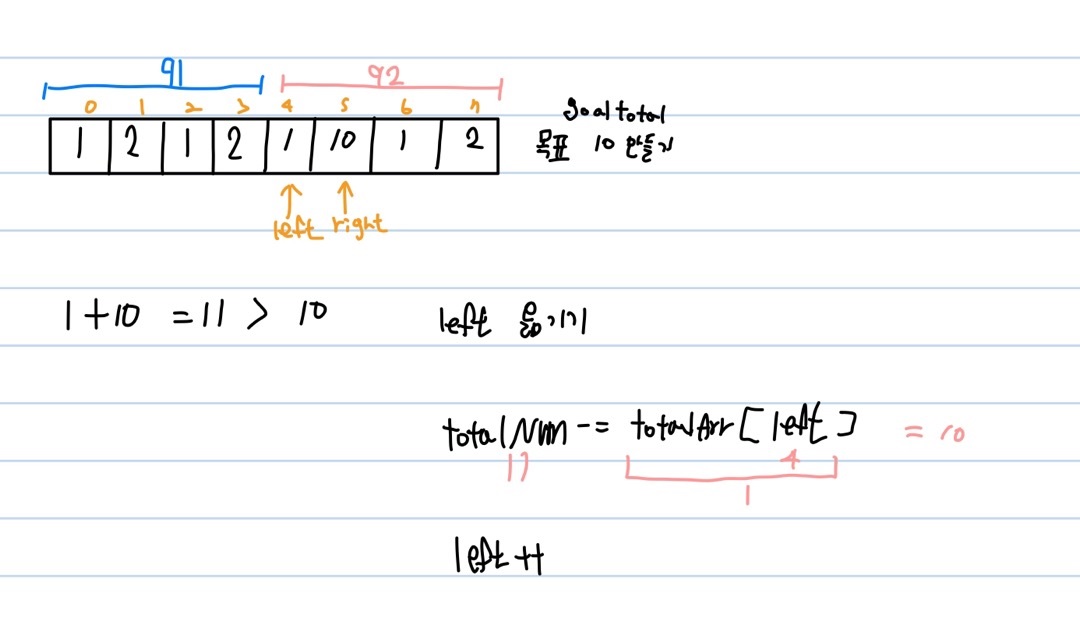 q1 q2
0 1 2 3 4 5 6 7
1 2 1 2 1 10 1 2
goal total
목표 10 만들기
left right
1+10 = 11 > 10
left 옮기기
totalNum -= totalArr[left] = 10
11 4
1
left ++